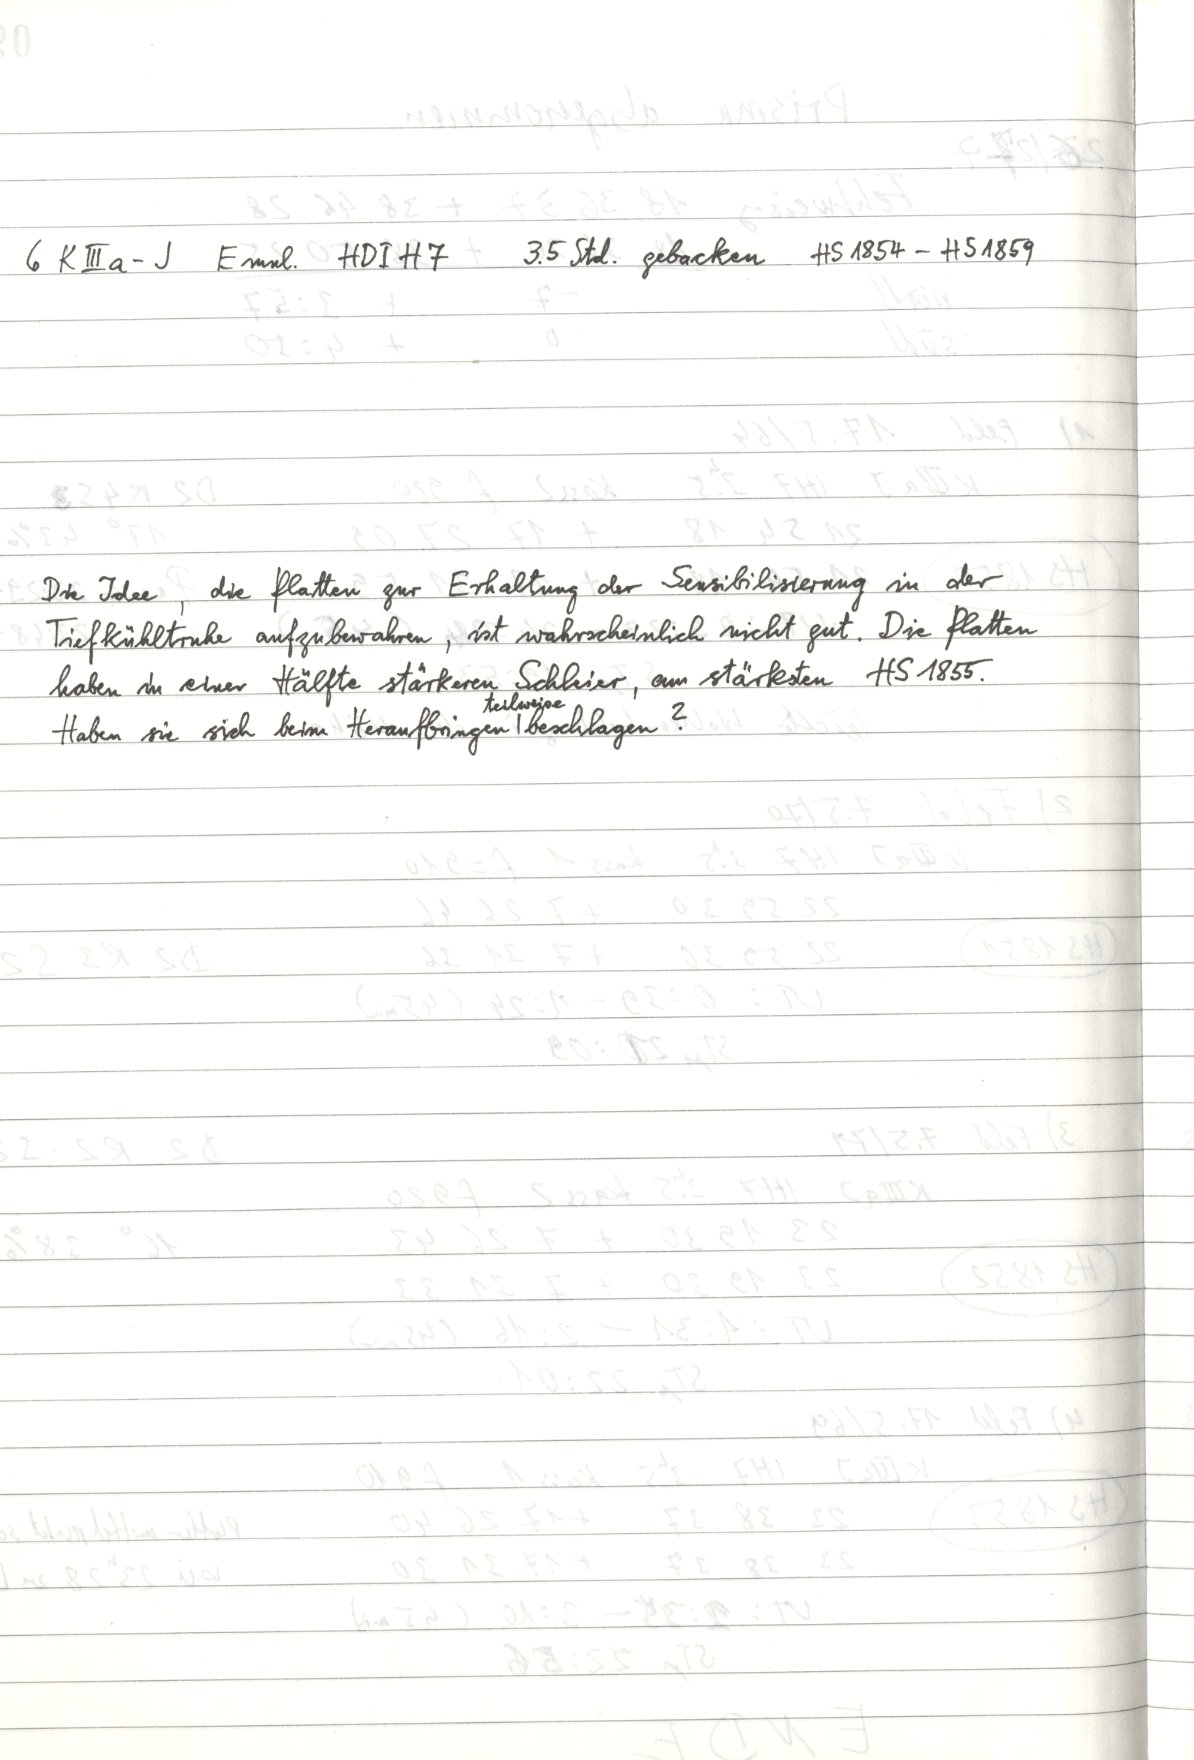 6 K III a - J Emul. HDIH7 3.5 Std. gebacken HS 1854 – HS 1859
Die Idee, die Platten zur Erhaltung der Sensibilisierung in der
Tiefkühltruhe aufzubewahren, ist wahrscheinlich nicht gut. Die Platten
haben in einer Hälfte stärkeren Schleier, am stärksten HS 1855.
teilweise
Haben sie sich beim Heraufbringen | beschlagen?